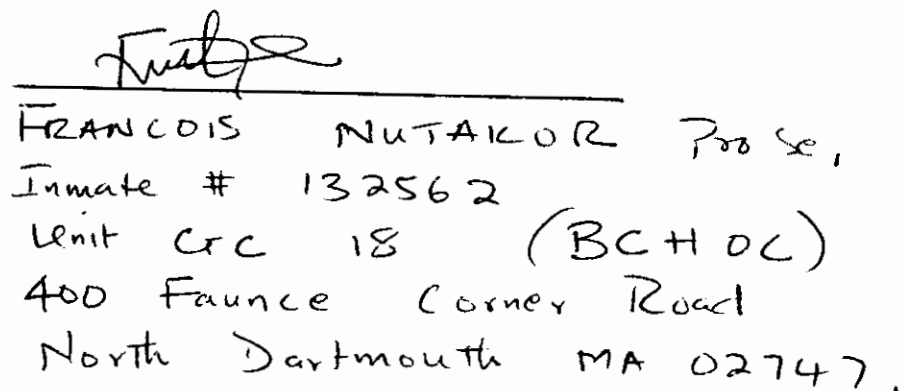 FRANCOIS NUTAKOR Pro se,
Inmate # 132562
Unit GC 18 (BCHOC)
400 Faunce Corner Road
North Dartmouth MA 02747.